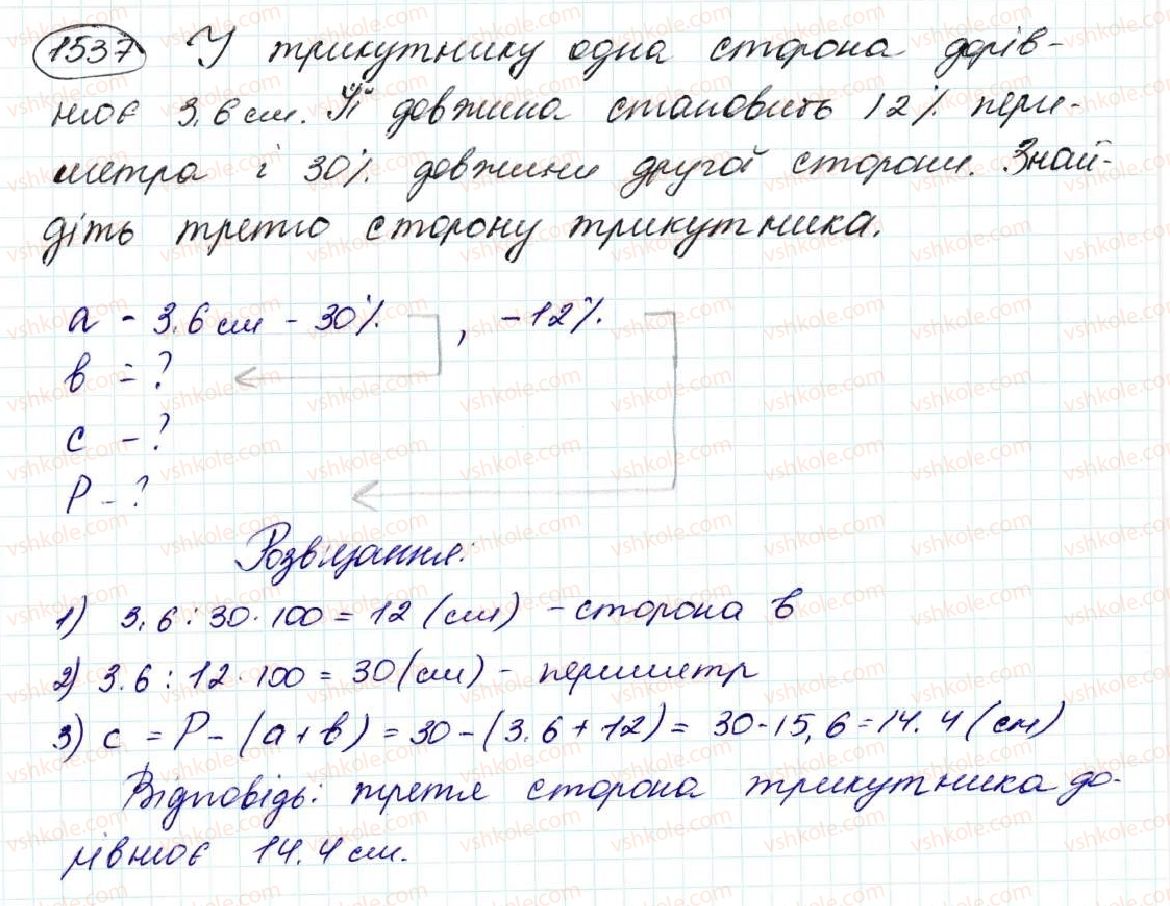 1537 У трикутнику одна сторона дорів-
нює 3,6 см. Її довжина становить 12% пери-
метра і 30% довжини другої сторони. Знай-
діть третю сторону трикутника.
a - 3.6 см - 30% , - 12%.
в = ?
с - ?
P - ?
Розв'язання:
1) 3,6 : 30 · 100 = 12 (см) - сторона в
2) 3.6 : 12 · 100 = 30 (см) - периметр
3) c = P - (a + в) = 30 - (3.6 + 12) = 30 - 15,6 = 14.4 (см)
Відповідь: третя сторона трикутника до-
рівнює 14.4 см.
vshkole.com